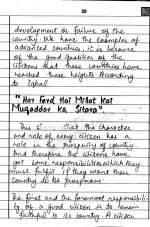 20
development or failure of the
country. We have the examples of
advanced countries. it is because
of the good qualities of the
citizens that these countries have
reached these heights. According
to Iqbal
"Har Fard Hai Millat Kai
Muqaddar ka Sitara"
This that the character
and role of every citizen has a
role in the prosperity of country.
And therefore the citizens have
got some responsibilities which they
must fulfill if they want their
country to be prosperous.
The first and the foremost responsibili-
ty of a good citizen is to remain
faithful to its country. A citizen